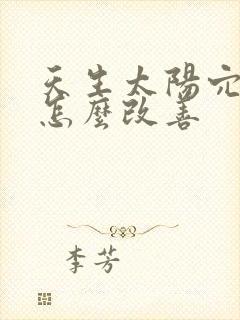 天生太陽穴
怎麼改善
李芳